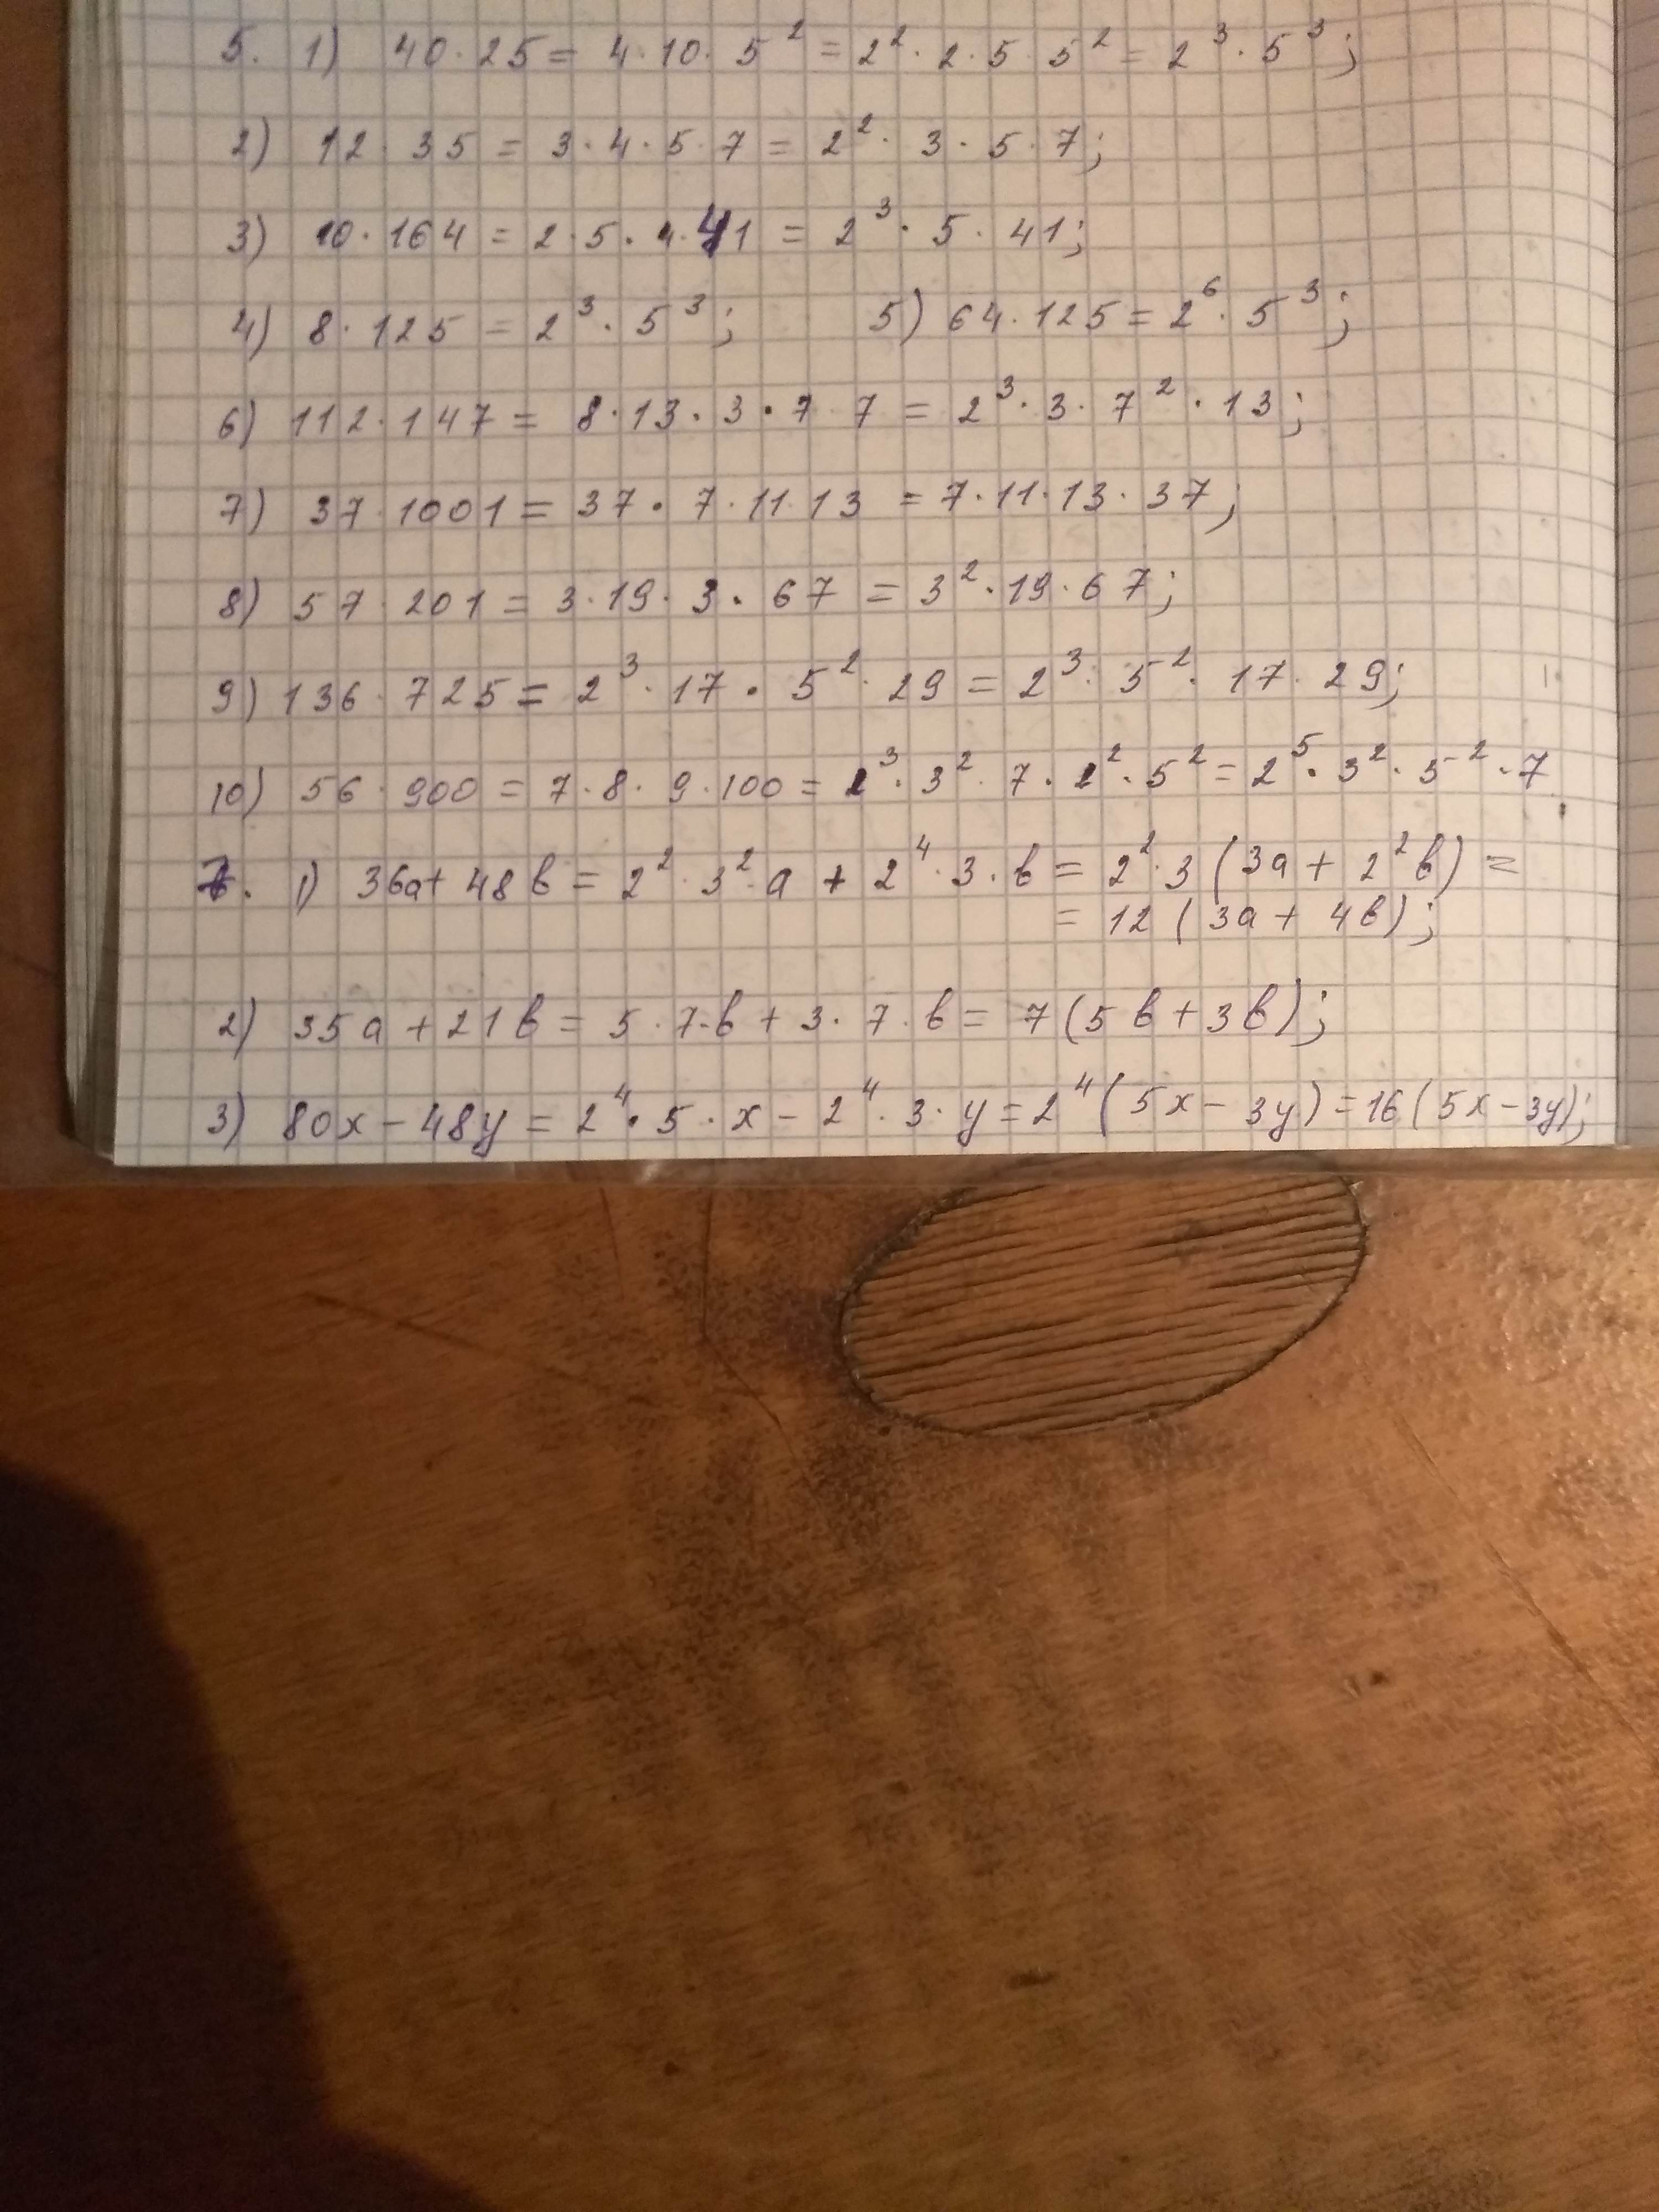 5. 1) 40·25 = 4·10·5² = 2²·2·5·5² = 2³·5³;
2) 12·35 = 3·4·5·7 = 2²·3·5·7;
3) 10·164 = 2·5·4·41 = 2³·5·41;
4) 8·125 = 2³·5³; 5) 64·125 = 2⁶·5³;
6) 112·147 = 8·13·3·7·7 = 2³·3·7²·13;
7) 37·1001 = 37·7·11·13 = 7·11·13·37;
8) 57·201 = 3·19·3·67 = 3²·19·67;
9) 136·725 = 2³·17·5²·29 = 2³·5²·17·29;
10) 56·900 = 7·8·9·100 = 2³·3²·7·2²·5² = 2⁵·3²·5²·7.
1) 36a + 48в = 2²·3²·a + 2⁴·3·в = 2²·3(3a + 2²в) =
= 12(3a + 4в);
2) 35a + 21в = 5·7·в + 3·7·в = 7(5в + 3в);
3) 80x − 48y = 2⁴·5·x − 2⁴·3·y = 2⁴(5x − 3y) = 16(5x − 3y);